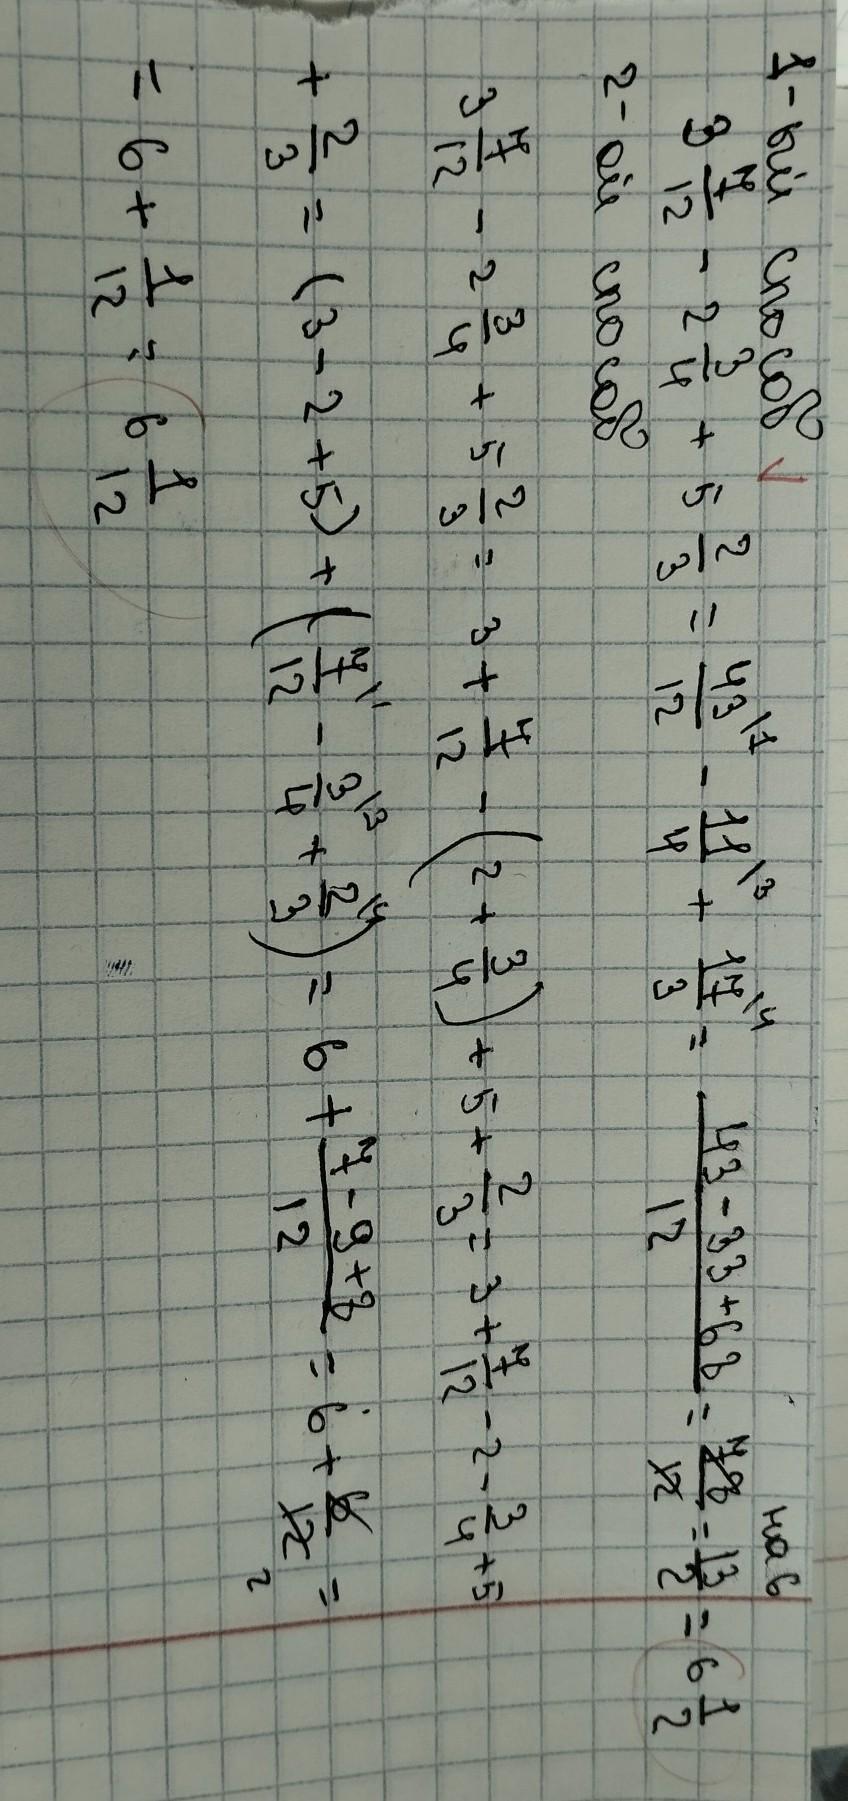 1-ый способ
3 7/12 - 2 3/4 + 5 2/3 = 43/12 \1 - 11/4 \3 + 17/3 \4 = (43 - 33 + 68)/12 = 78/12 = 13/2 = 6 1/2
на 6
2-ой способ
3 7/12 - 2 3/4 + 5 2/3 = 3 + 7/12 - (2 + 3/4) + 5 + 2/3 = 3 + 7/12 - 2 - 3/4 + 5
+ 2/3 = (3 - 2 + 5) + (7/12 \1 - 3/4 \3 + 2/3 \4) = 6 + (7 - 9 + 8)/12 = 6 + 6/12 2 =
= 6 + 1/12 = 6 1/12